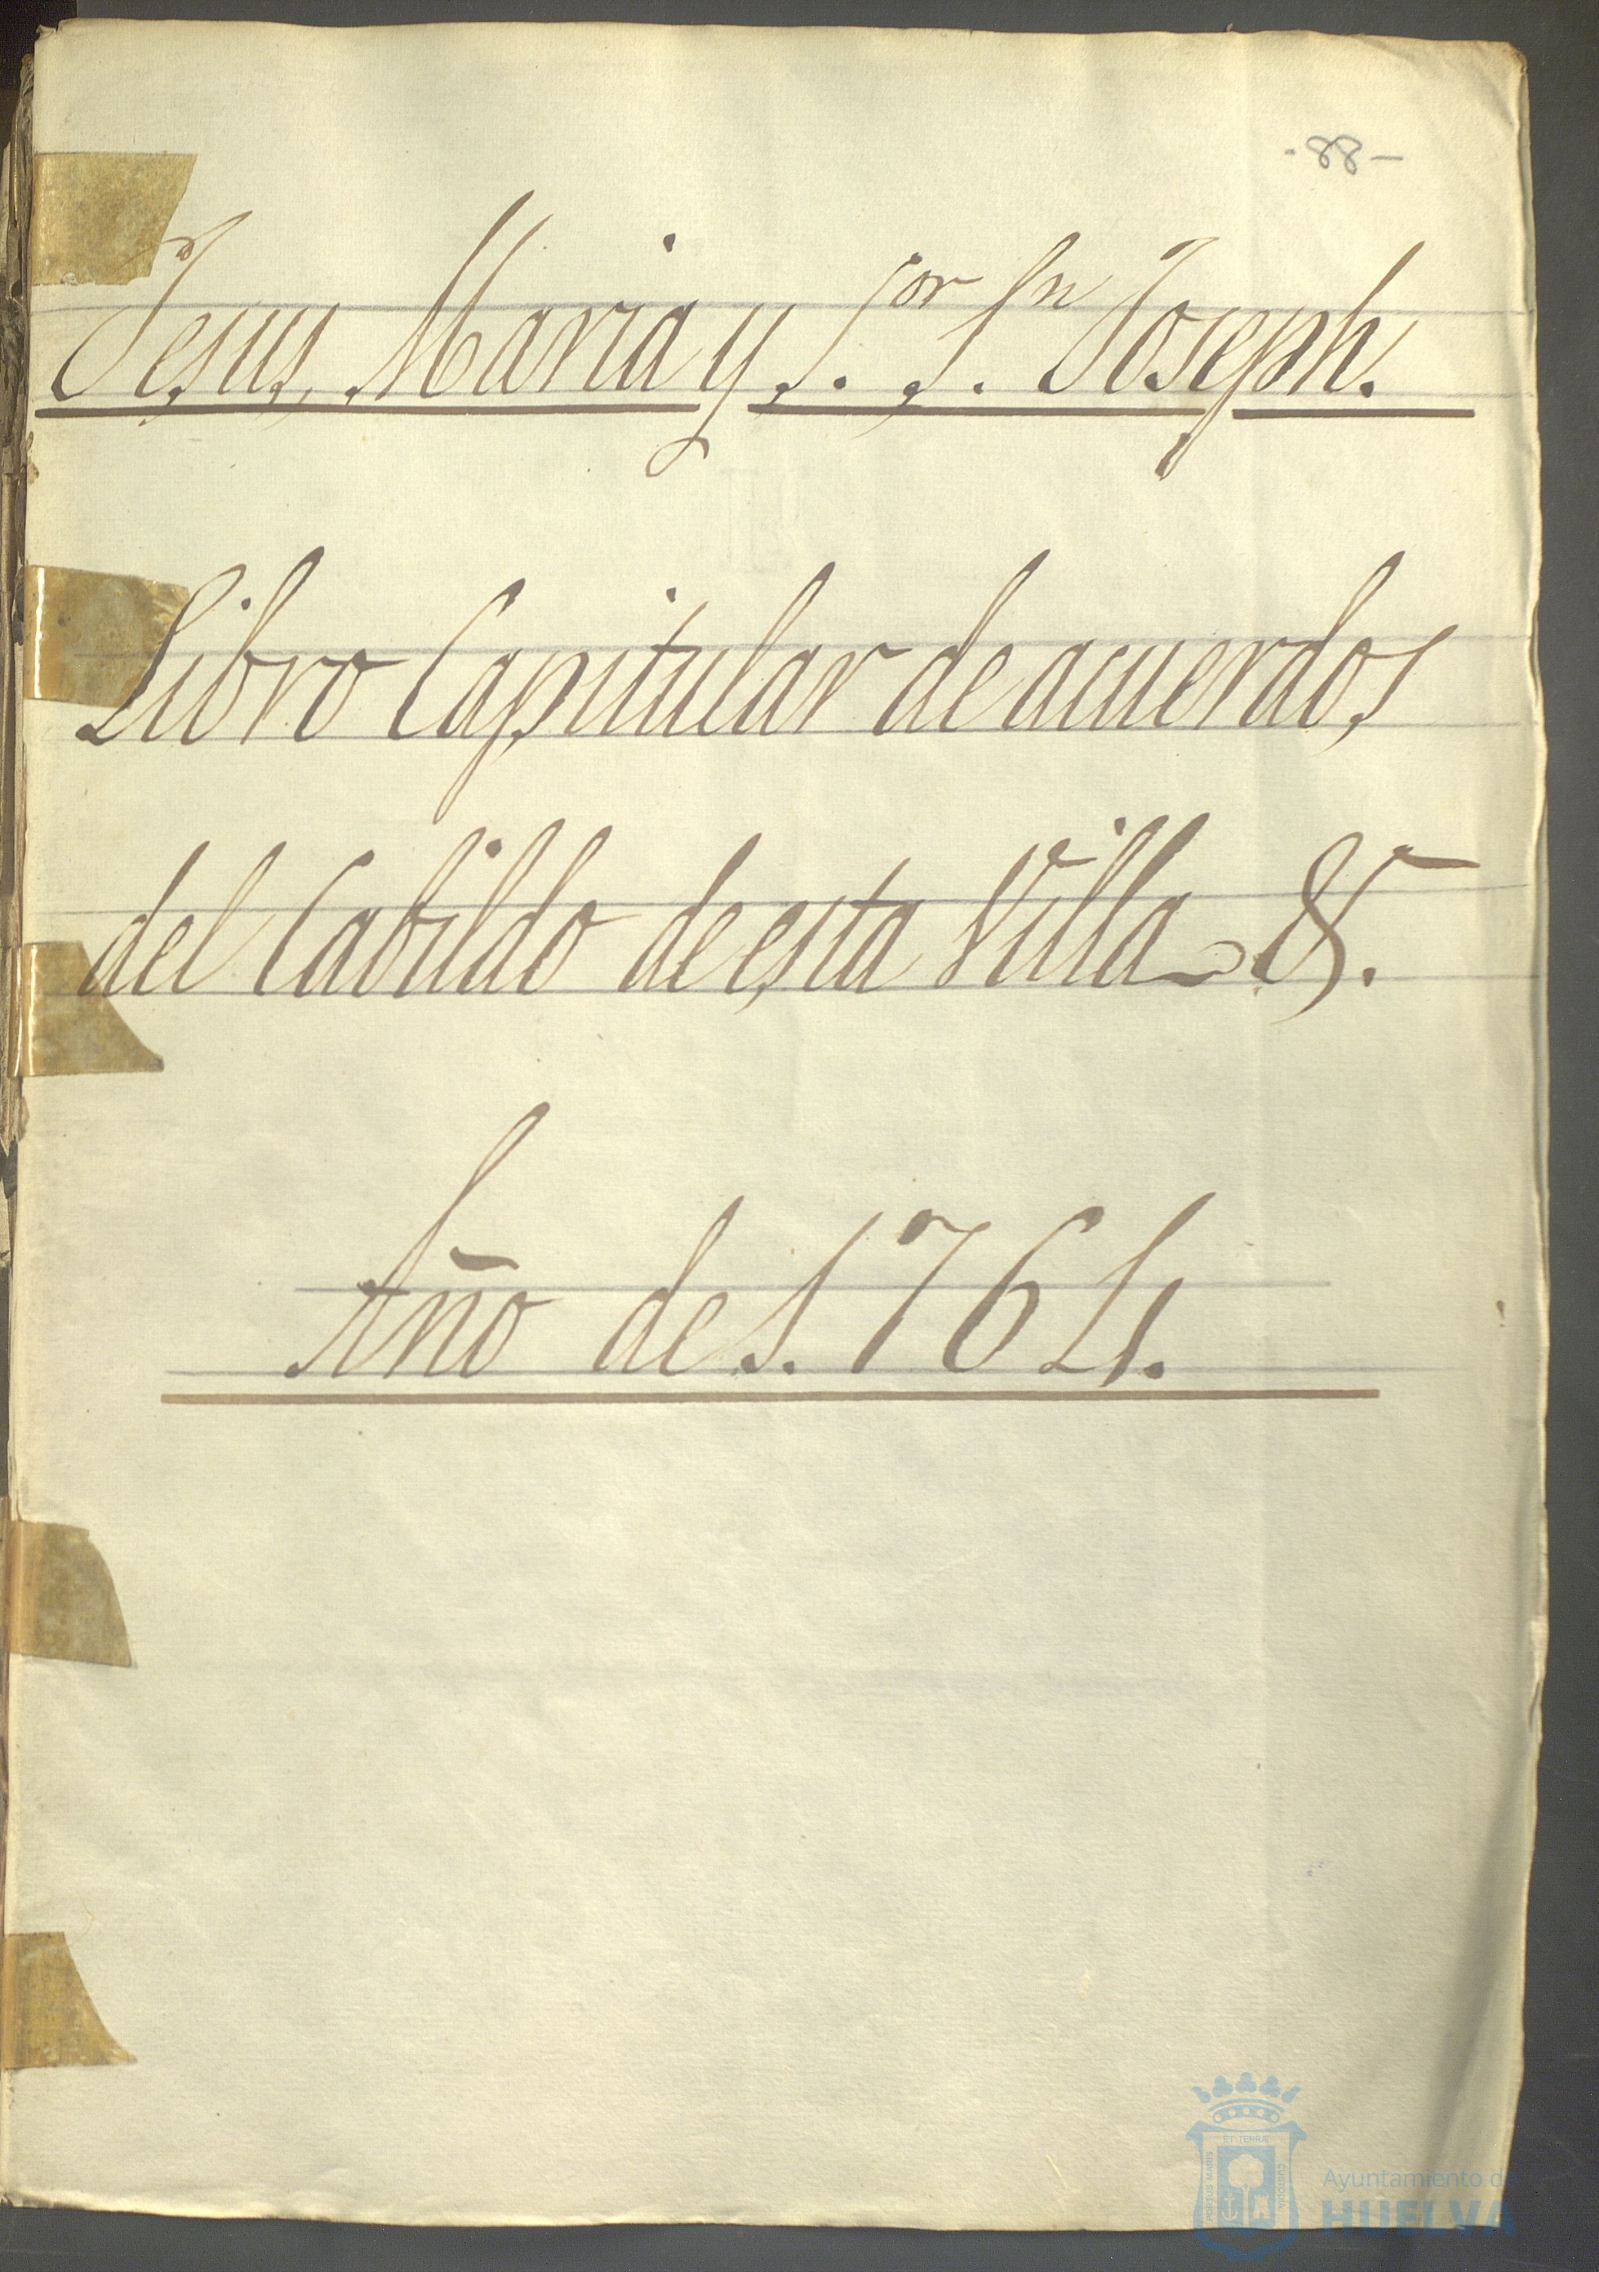 -88-
Jesus, Maria y S.or S.n Joseph.
Libro Capitular de acuerdos
del Cabildo de esta Villa &.
Año de 1764.
ET TERRÆ
PORTUS MARIS
CUSTODIA
Ayuntamiento de
HUELVA